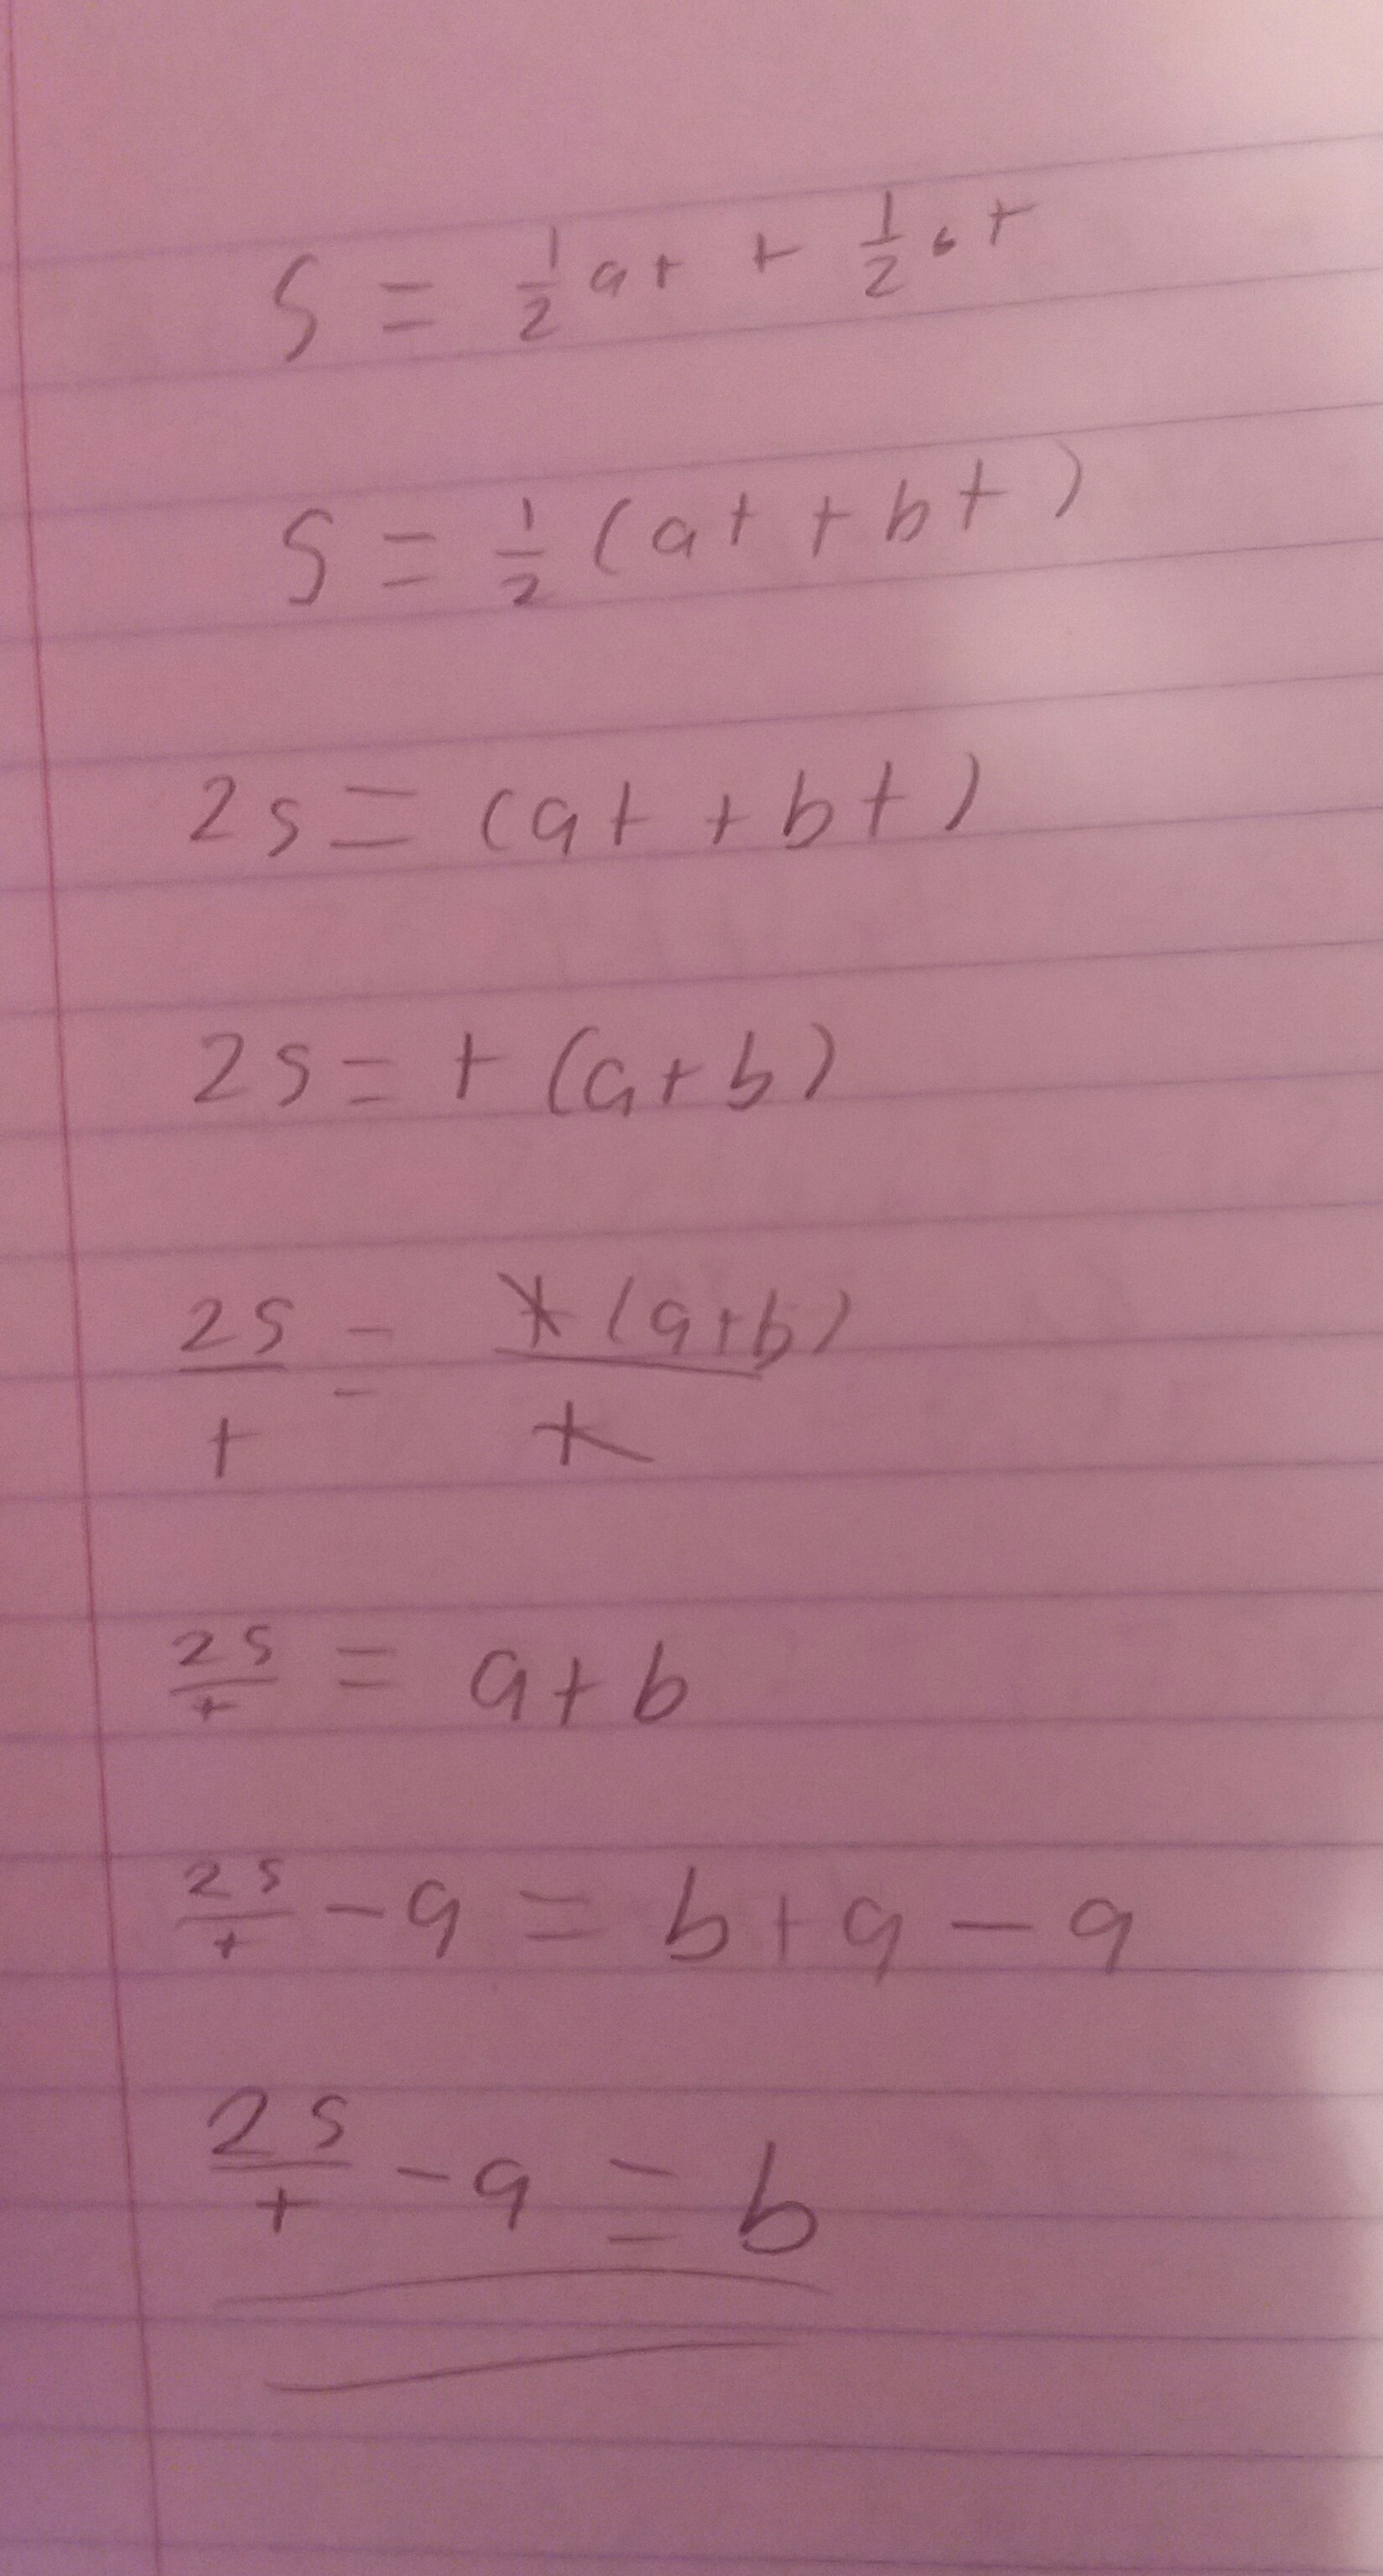 S = 1/2 at + 1/2 bt
S = 1/2 (at + bt)
2s = (at + bt)
2s = t (a+b)
2s/t = t(a+b)/t
2s/t = a+b
2s/t - a = b+a - a
2s/t - a = b